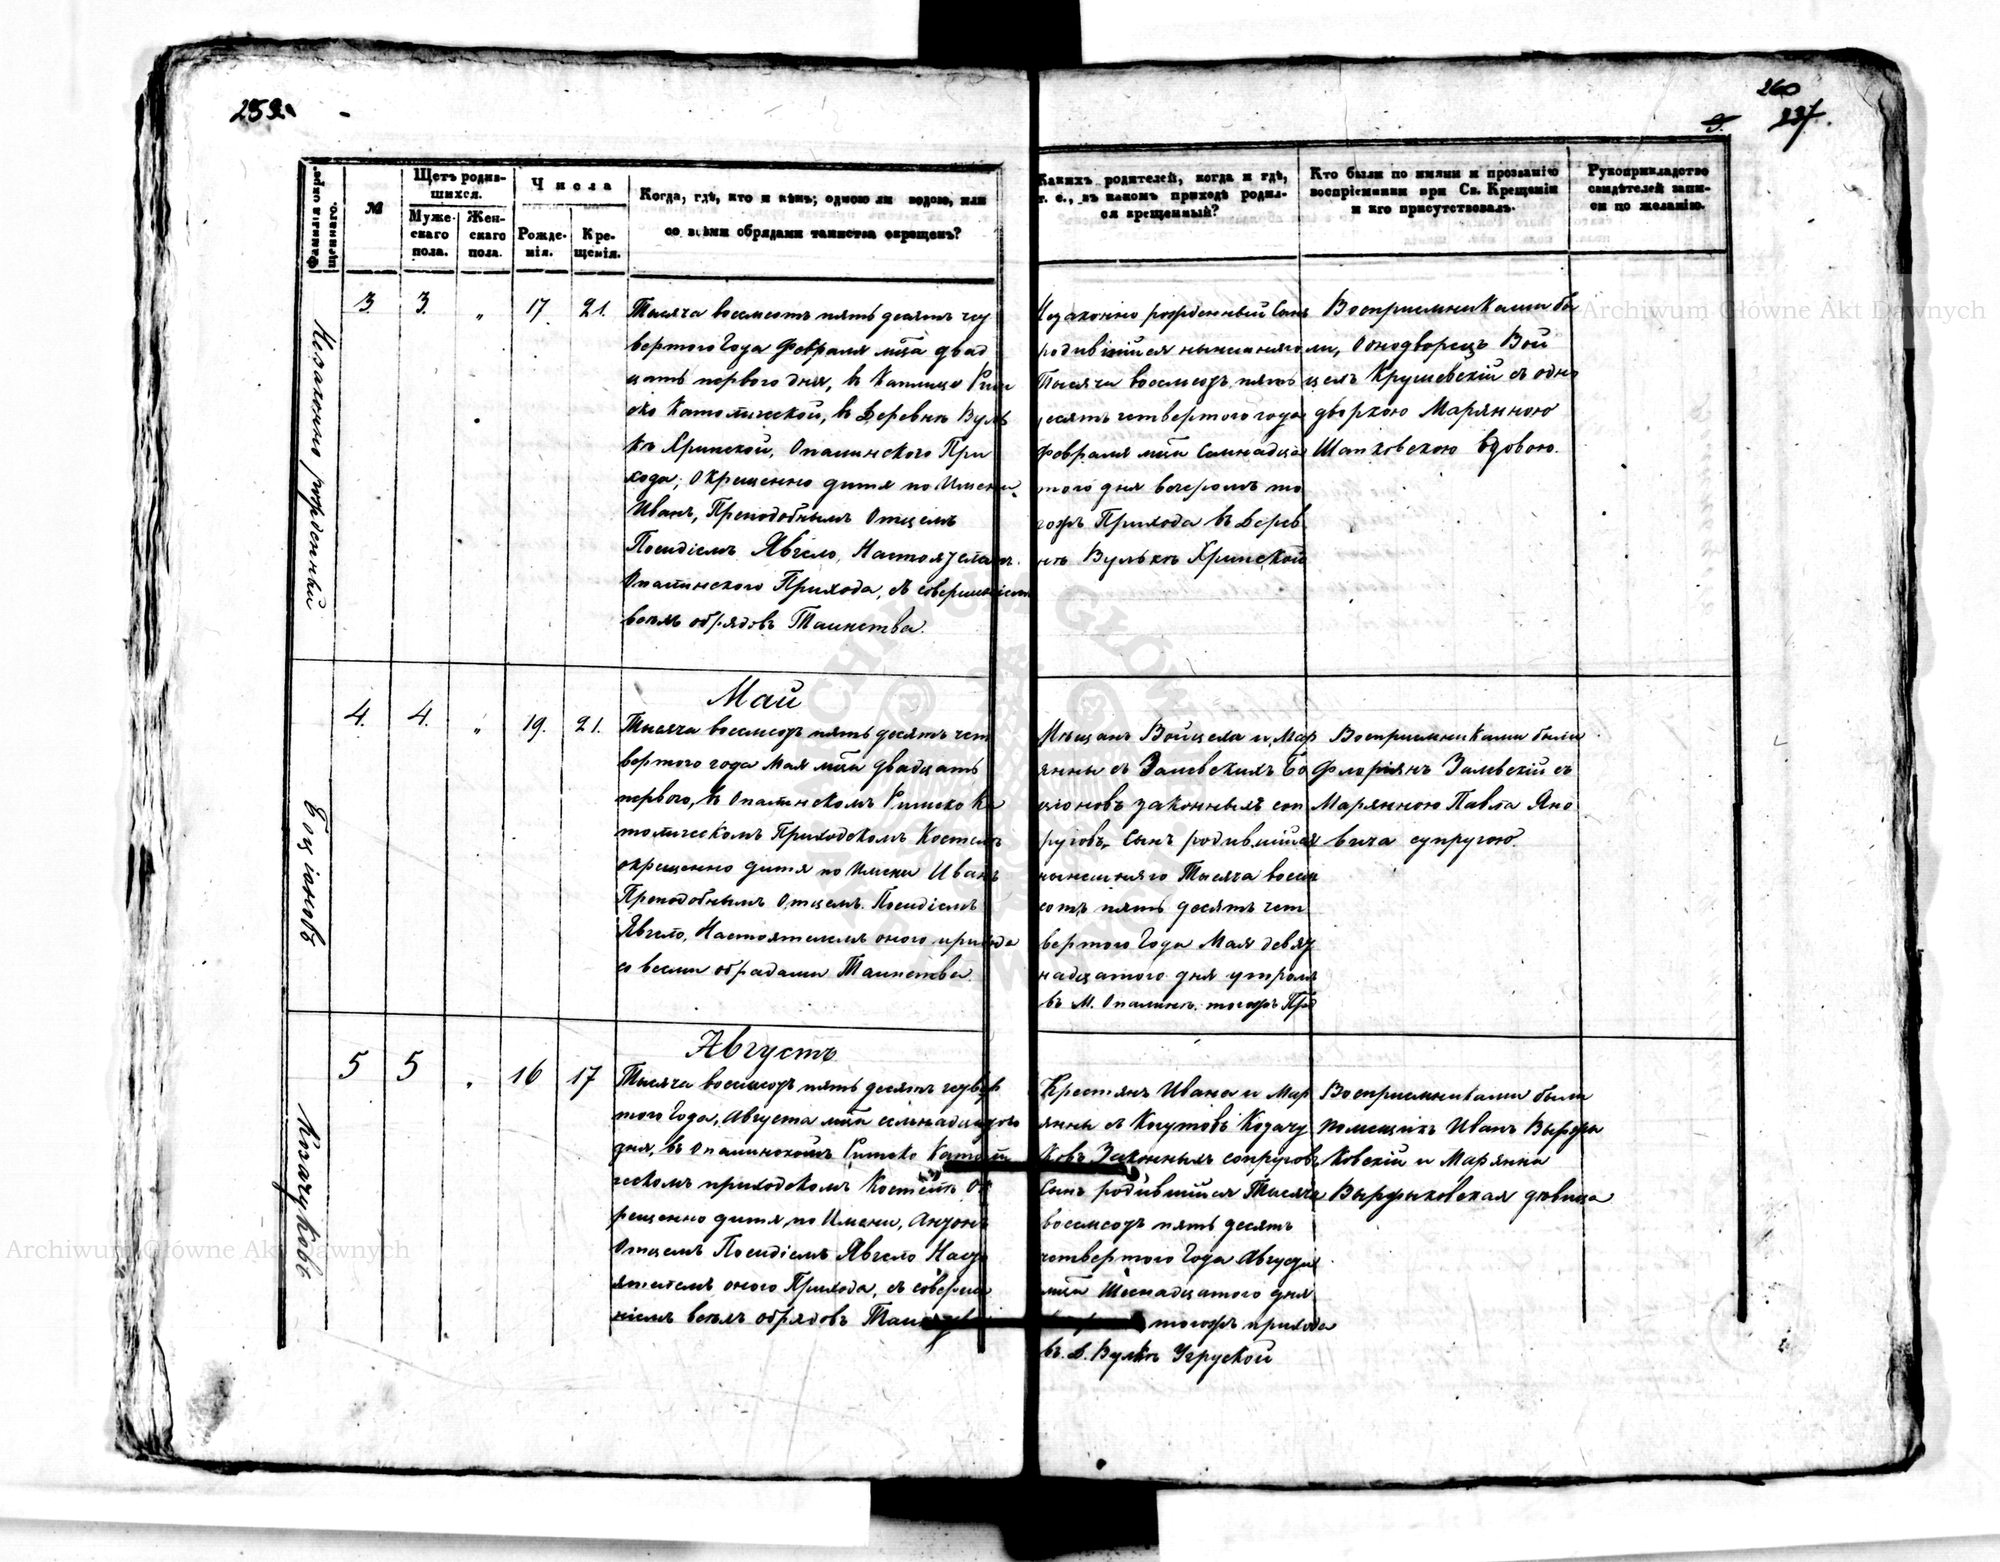 259
260
237.
Фамилія окре-
щеннаго.
№
Щетъ родив-
шихся.
Муже-
скаго
пола.
Жен-
скаго
пола.
Числа
Рожде-
нія.
Кре-
щенія.
Когда, гдѣ, кто и кѣмъ; одною ли водою, или
со всѣми обрядами таинства окрещенъ?
Какихъ родителей, когда и гдѣ,
т. е., въ какомъ приходѣ родил-
ся крещенный?
Кто были по имяни и прозванію
воспріемники при Св. Крещеніи
и кто присутствовалъ.
Рукоприкладство
свидѣтелей запи-
си по желанію.
Незаконно рожденный
3.
3.
"
17.
21.
Тысяча восемсотъ пять десятъ чет
вертого Года Февраля мца двад
цать первого дня, въ Каплице Рим
ско Католической, въ Деревнѣ Вуль
кѣ Хринской, Опалинского При
хода, Окрещенно дитя по Имени
Иванъ, Преподобнымъ Отцемъ
Посидіемъ Явгело, Настоятелемъ
Опалинского Прихода, съ совершеніемъ
всѣхъ обрядовъ Таинства.
Незаконно рожденный Сынъ
родившійся нынешняго
Тысяча восемсотъ пять
десятъ четвертого года
Февраля мца Семнадца
того дня вечеромъ то
гожъ Прихода въ Дерев
нѣ Вулькѣ Хринской
Восприемниками бы
ли, Однодворецъ Вой
цехъ Крушевскій съ одно
дворкою Марянною
Шатковскою вдовою.
Май
Боціоновъ
4.
4.
"
19.
21.
Тысяча восемсотъ пять десятъ чет
вертого года Мая мца двадцать
первого, въ Опалинскомъ Римско Ка
толическомъ Приходскомъ Костелѣ
окрещенно дитя по Имени Иванъ
Преподобнымъ Отцемъ Посидіемъ
Явгело, Настоятелемъ оного прихода
со всеми обрадами Таинства.
Мѣщанъ Войцеха и Мар
янны съ Залевскихъ Бо
ціоновъ законныхъ соп
руговъ, Сынъ родившійся
нынешняго Тысяча восем
сотъ пять десятъ чет
вертого Года Мая девят
надцатого дня утромъ
въ М. Опалинѣ тогожъ Прих
Восприемниками были
Флоріянъ Залевскій съ
Марянною Павла Яно
вича супругою.
Августъ
Козачуковъ
5
5
"
16
17
Тысяча восемсотъ пять десятъ четвер
того Года, Августа мца семнадцатого
дня, въ Опалинскомъ Римско Католи
ческомъ приходскомъ Костелѣ Ок
рещенно дитя по Имени, Антонъ
Отцемъ Посидіемъ Явгело Насто
ятелемъ оного Прихода, съ соверше
ніемъ всѣхъ обрядовъ Таинства
Крестянъ Ивана и Мар
янны съ Когутовъ Козачу
ковъ Законныхъ сопруговъ
Сынъ родившійся Тысяча
восемсотъ пять десятъ
четвертого Года Августа
мца Шеснадцатого дня
тогожъ прихода
въ Д. Вулкѣ Угруской
Восприемниками были
помещикъ Иванъ
ковскій и Марянна
дѣвица
Archiwum Główne Akt Dawnych
Archiwum Główne Akt Dawnych